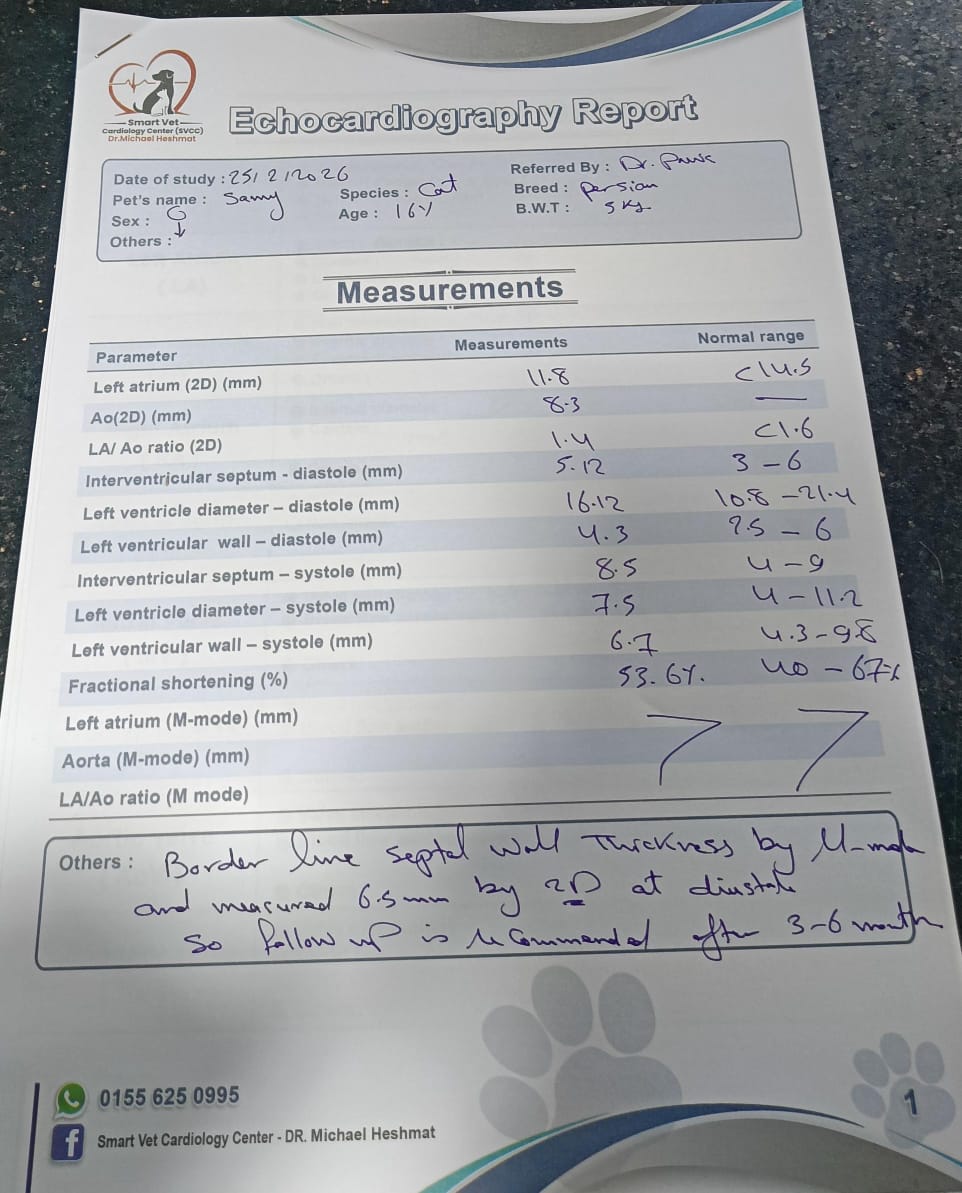 Smart Vet
Cardiology Center (SVCC)
Dr.Michael Heshmat
Echocardiography Report
Date of study : 25/2/2026
Referred By : Dr.
Pet's name : Samy
Species : Cat
Breed : Persian
Sex :
Age : 16Y
B.W.T : 5 Kg
Others :
Measurements
Parameter Measurements Normal range
Left atrium (2D) (mm) 11.8 <14.5
Ao(2D) (mm) 8.3 —
LA/ Ao ratio (2D) 1.4 <1.6
Interventricular septum - diastole (mm) 5.12 3 - 6
Left ventricle diameter – diastole (mm) 16.12 10.8 - 21.4
Left ventricular wall – diastole (mm) 4.3 2.5 - 6
Interventricular septum – systole (mm) 8.5 4 - 9
Left ventricle diameter – systole (mm) 7.5 4 - 11.2
Left ventricular wall – systole (mm) 6.7 4.3 - 9.8
Fractional shortening (%) 53.6%. 40 - 67%
Left atrium (M-mode) (mm)
Aorta (M-mode) (mm)
LA/Ao ratio (M mode)
Others : Border line septal wall Thickness by M-mode
and measured 6.5 mm by 2D at diastole
So follow up is recommended after 3-6 month
0155 625 0995
Smart Vet Cardiology Center - DR. Michael Heshmat
1